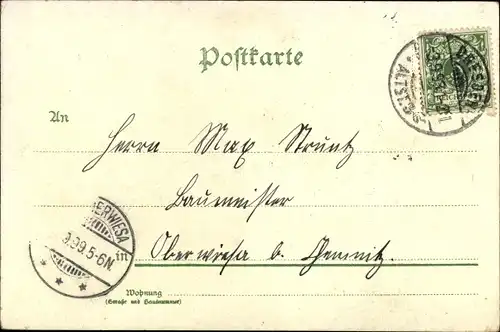 Postkarte
DRESDEN
ALTST.
An
Herrn Max Struntz
Baumeister
ERWIESA
9.99.5-6N.
in
Oberwiesa b. Chemnitz.
Wohnung
(Straße und Hausnummer)